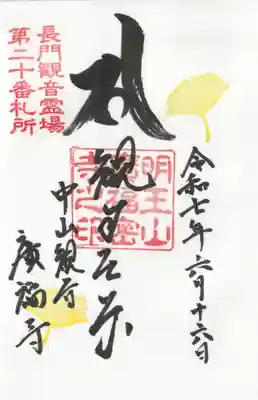 長門観音霊場
第二十番札所
令和七年六月十六日
明王山
廣福密
寺之印
中山観音
廣福寺